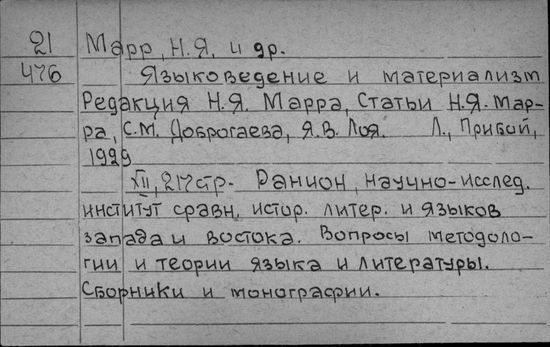 21 Марр, Н.Я. и др.
476 Языковедение и материализм
Редакция Н.Я. Марра, Статьи Н.Я. Мар-
ра, С.М. Доброгаева, Я.В. Лоя. Л., Прибой,
1929
XII, 217стр. Ранион, научно-исслед.
институт сравн. истор. литер. и языков
запада и востока. Вопросы методоло-
гии и теории языка и литературы.
Сборники и монографии.